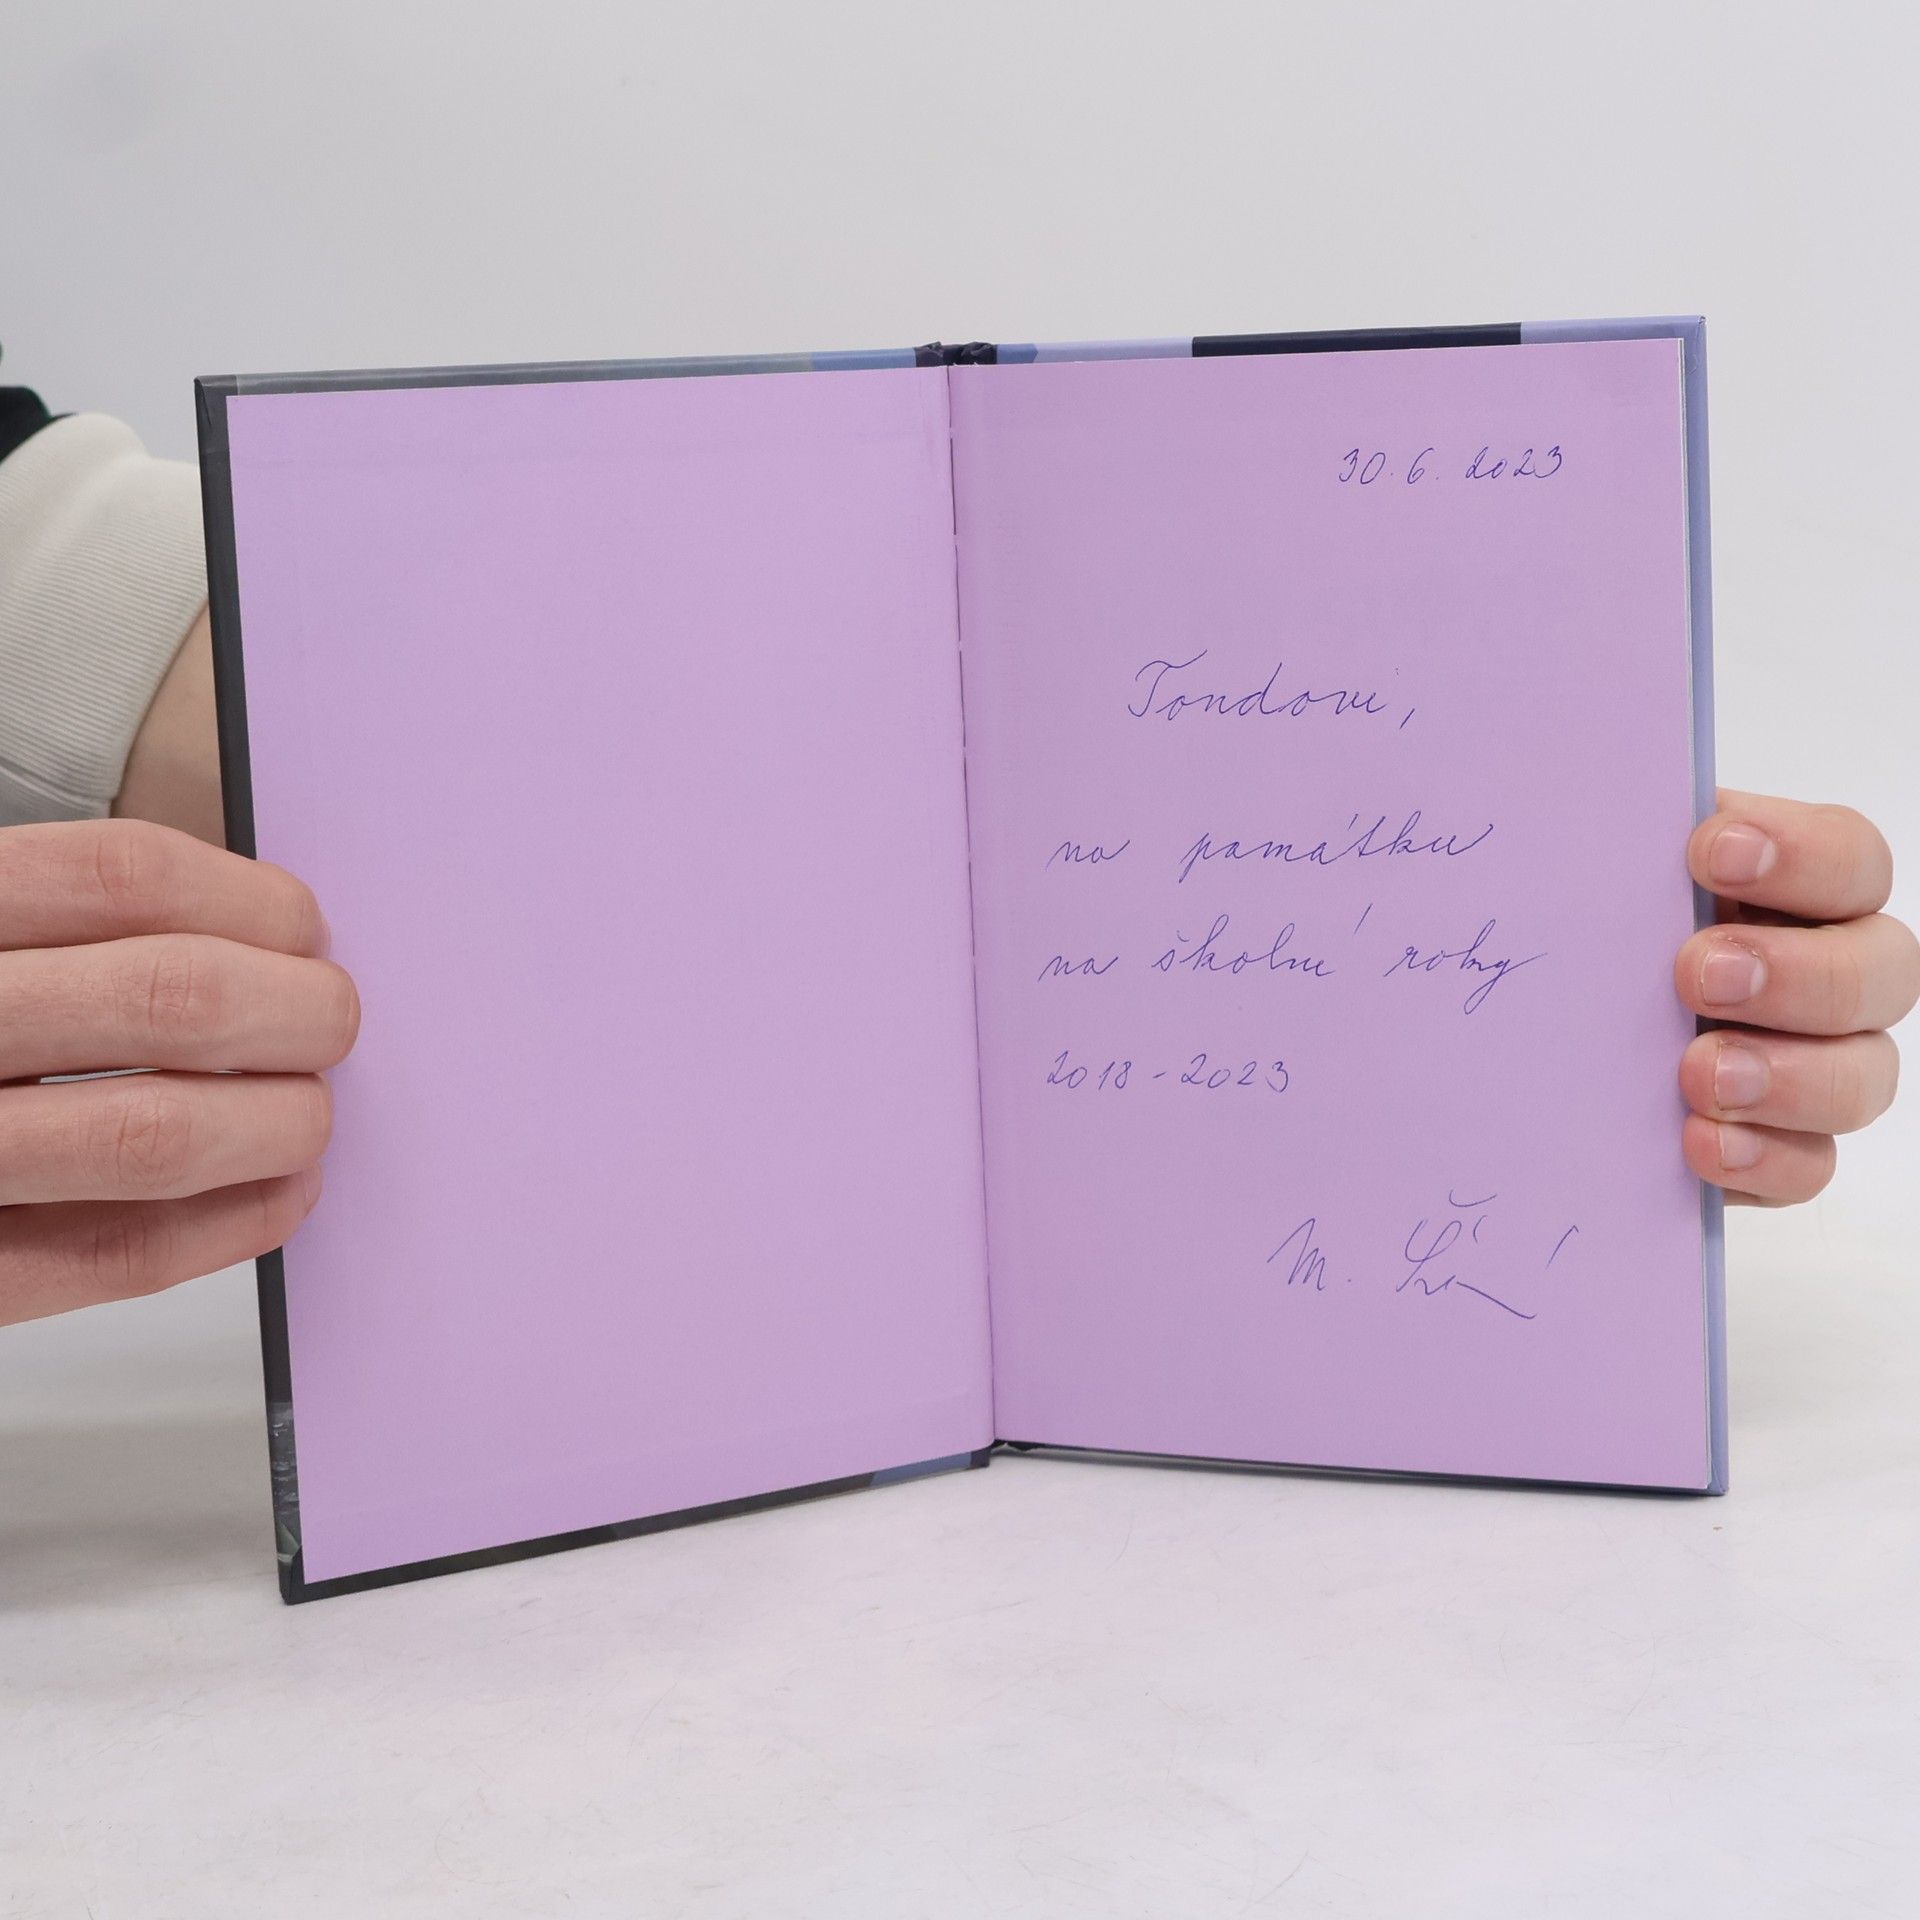 30. 6. 2023
Tondovi,
na památku
na školní roky
2018 - 2023
M.